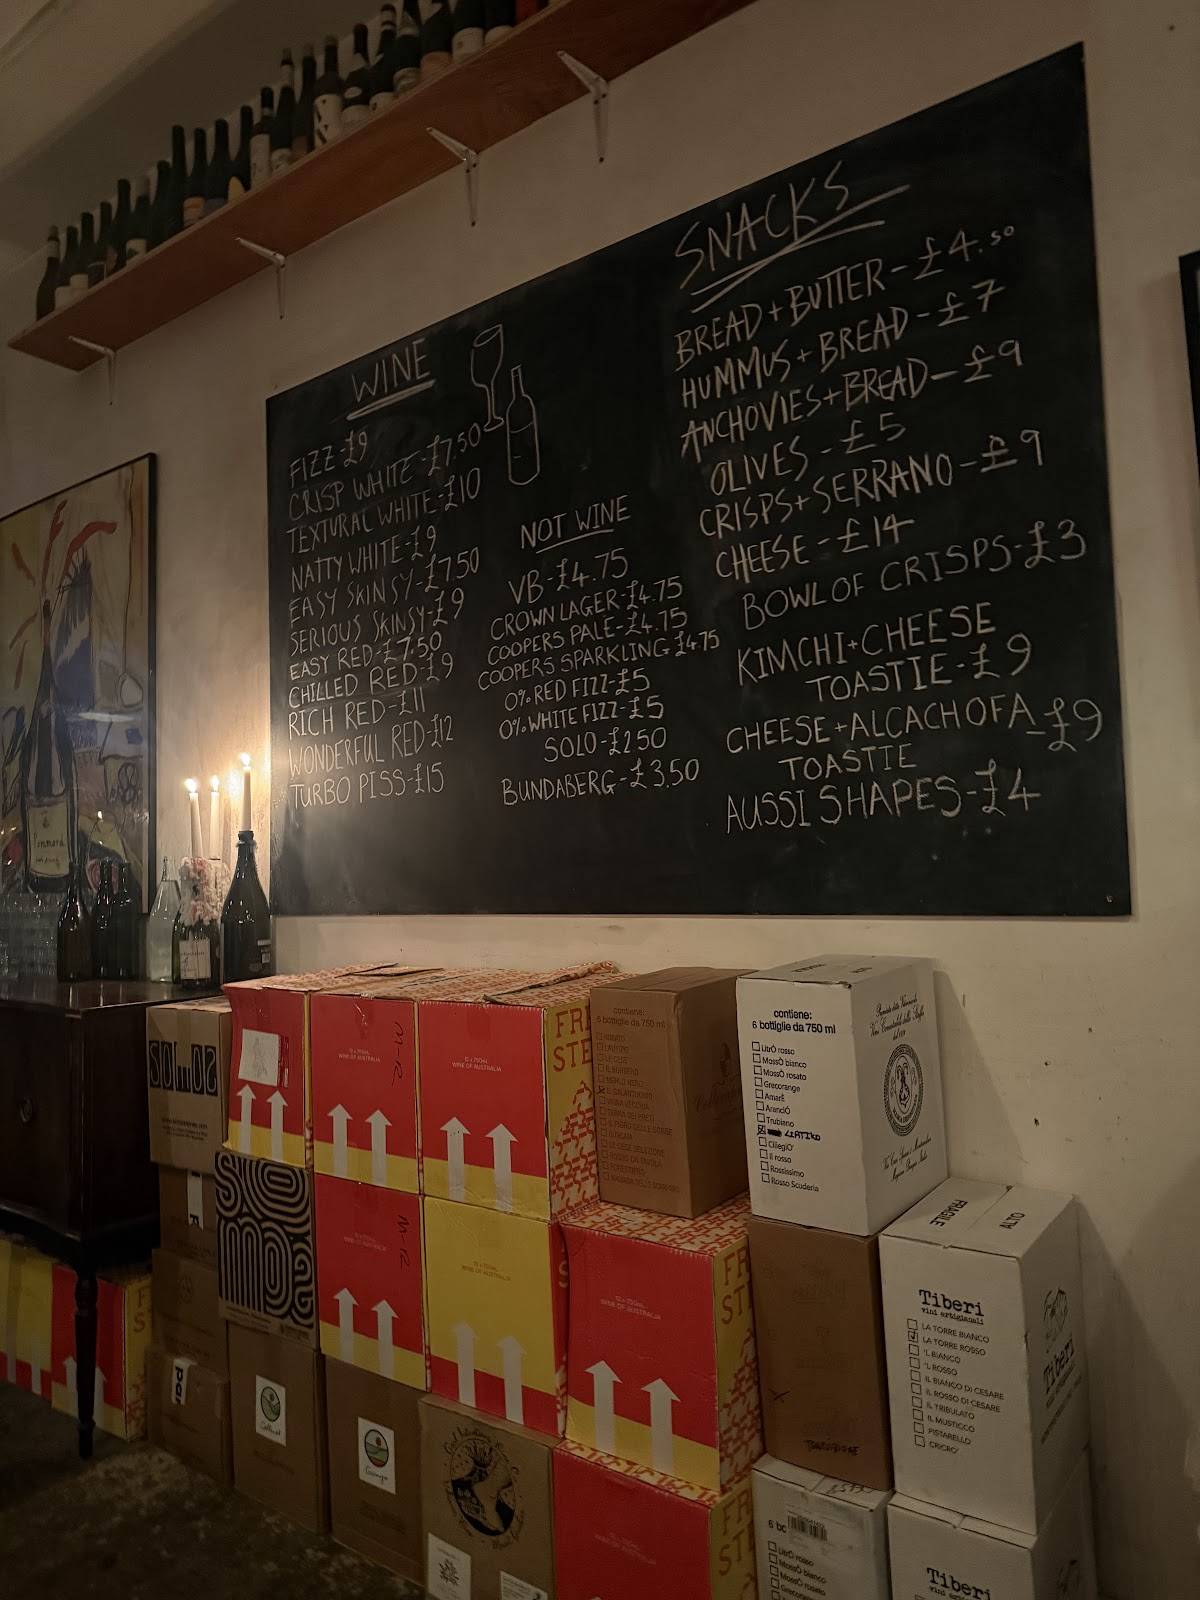 WINE
FIZZ-£9
CRISP WHITE-£7.50
TEXTURAL WHITE-£10
NATTY WHITE-£9
EASY SKINSY-£7.50
SERIOUS SKINSY-£9
EASY RED-£7.50
CHILLED RED-£9
RICH RED-£11
WONDERFUL RED-£12
TURBO PISS-£15
NOT WINE
VB-£4.75
CROWN LAGER-£4.75
COOPERS PALE-£4.75
COOPERS SPARKLING-£4.75
0% RED FIZZ-£5
0% WHITE FIZZ-£5
SOLO-£2.50
BUNDABERG-£3.50
SNACKS
BREAD+BUTTER-£4.50
HUMMUS+BREAD-£7
ANCHOVIES+BREAD-£9
OLIVES-£5
CRISPS+SERRANO-£9
CHEESE-£14
BOWL OF CRISPS-£3
KIMCHI+CHEESE
TOASTIE-£9
CHEESE+ALCACHOFA-£9
TOASTIE
AUSSI SHAPES-£4
M-12
12 x 750ML
WINE OF AUSTRALIA
FRE
STE
contiene:
6 bottiglie da 750 ml
contiene:
6 bottiglie da 750 ml
LitrÒ rosso
MossÒ bianco
MossÒ rosato
Grecorange
AmarÈ
AranciÒ
Trubiano
CiliegiO'
Il rosso
Rossissimo
Rosso Scuderia
M-12
12 x 750ML
WINE OF AUSTRALIA
12 x 750ML
WINE OF AUSTRALIA
FR
ST
FRAGILE
ALTO
Tiberi
vini artigianali
LA TORRE BIANCO
LA TORRE ROSSO
'L BIANCO
'L ROSSO
IL BIANCO DI CESARE
IL ROSSO DI CESARE
IL TRIBULATO
IL MUSTICCO
PISTARELLO
CRICRO'
Tiberi
par
FR
ST
6 bo
LitrÒ rosso
MossÒ bianco
MossÒ rosato
Grecorange
Tiberi